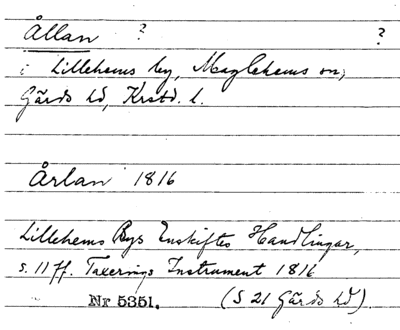 Ållan ? ?
i Lillehems by, Maglehems sn,
Gärds hd, Krstd. l.
Årlan 1816
Lillehems Bys Enskiftes Handlingar,
s. 11 ff. Taxerings Instrument 1816
Nr 5351. (S 21 Gärds hd).